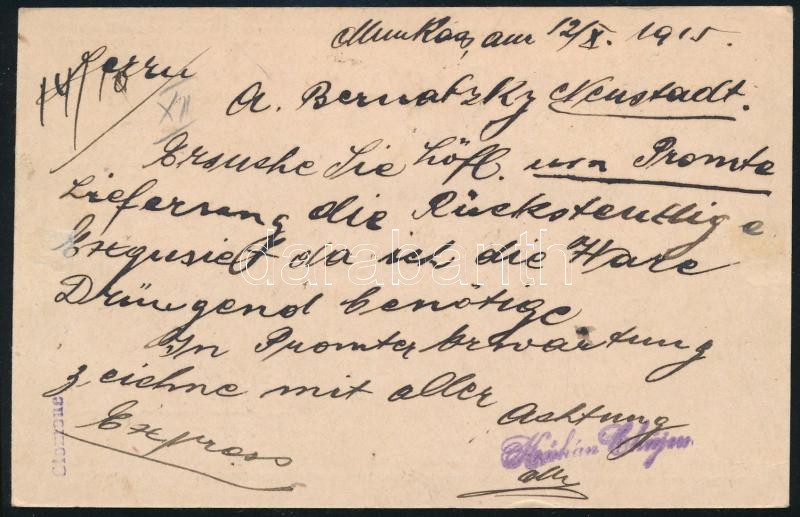 Munkacs, am 12/X. 1915.
Herrn
XII
A. Bernatzky Neustadt.
Ersuche Sie höfl. um Promte
Lieferung die Rückstentlige
Exqusiet da ich die Ware
Drüngend benötige
In Promter Erwartung
zeichne mit aller
Achtung
Express
darabanth